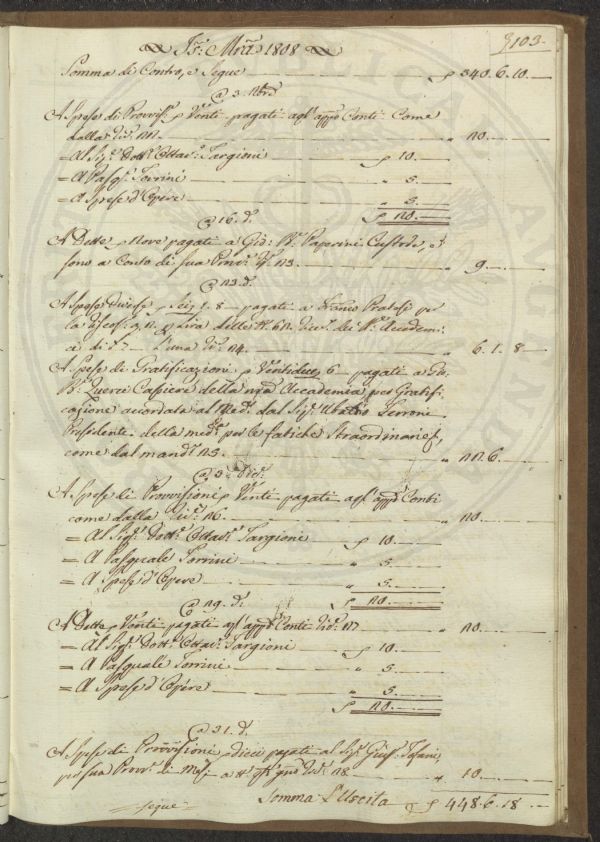 Is: Mrã 1808
103
Somma di Contro, e Segue £ 340.6.10.
@ 3. Nbre
A Spese di Provvis.i £ Venti pagati agl' appo Conti Come
dalla 20.
= Al Sig.r Dott.r Ottav.o Targioni £ 10.
= A Pasq.e Torrini " 5.
= A Spese d'Opere " 5.
£ 20.
@ 16. d.o
A Dette £ Nove pagati a Gio: B.a Paperini Custode, e
sono a Conto di sua Provv.e 23. " 9.
@ 23. d.o
A Spese Diverse £ Sei, 1. 8 pagati a Franco Pratesi per
la Lira delle dei Accadem.
" 6.1.8
A Spese di Gratificazioni £ Ventidue, 6 pagati a Gio.
B.a Querci Cassiere della nra Accademia per Gratifi-
cazione accordata al Med.o dal Sig.r
Presidente della med.a per le fatiche Straordinarie,
come dal mand.o 25. " 22.6.
@ 5. Dic.e
A Spese di Provvisioni £ Venti pagati agl' appo Conti
come dalla Giu.e 26 " 20.
= Al Sig.r Dott.r Ottav.o Targioni £ 10.
= A Pasquale Torrini " 5.
= A Spese d'Opere " 5.
£ 20.
@ 29. d.o
A Dette £ Venti pagati agl' appo Conti 27 " 20.
= Al Sig.r Dott.r Ottav.o Targioni £ 10.
= A Pasquale Torrini " 5.
= A Spese d'Opere " 5.
£ 20.
@ 31. d.o
A Spese di Provvisioni £ dieci pagati al Sig.r Gius.e Tofani,
per sua Provv.e di Mesi 28 " 10.
segue Somma l'Uscita £ 448.6.18.